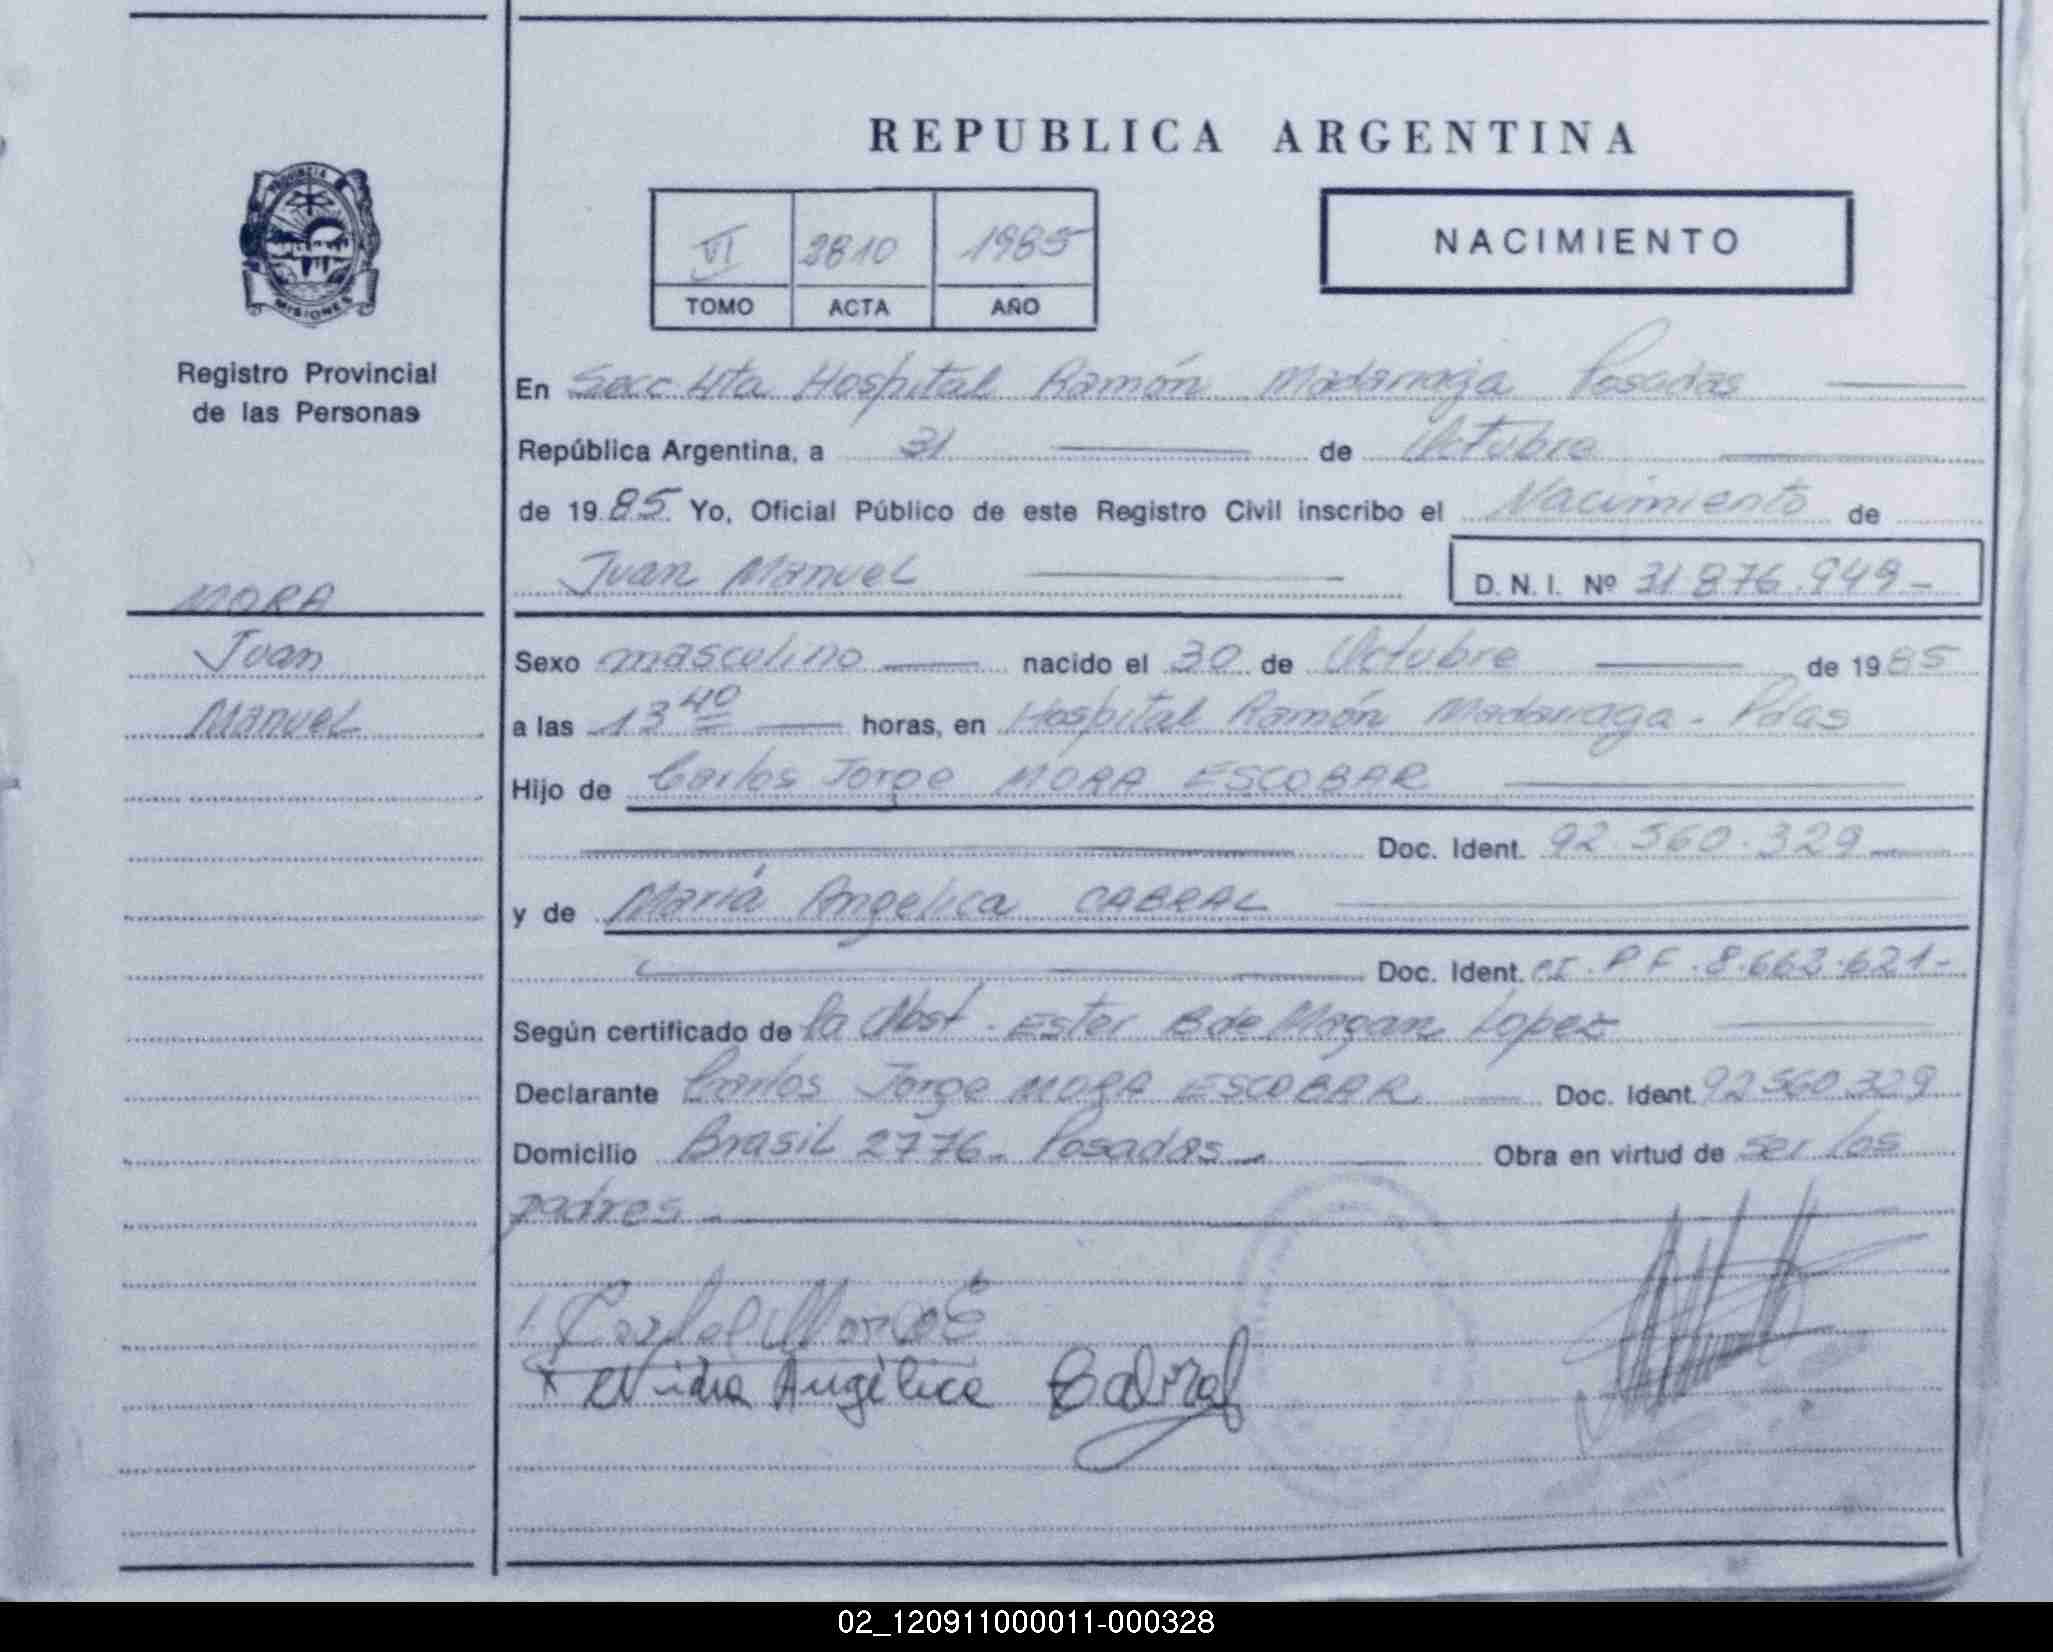 REPUBLICA ARGENTINA
PROVINCIA
MISIONES
Registro Provincial
de las Personas
VI 2810 1985
TOMO ACTA AÑO
NACIMIENTO
En Secc 4ta Hospital Ramón Madariaga Posadas
República Argentina, a 31 de Octubre
de 1985 Yo, Oficial Público de este Registro Civil inscribo el Nacimiento de
Juan Manuel D. N. I. Nº 31 876.949-
MORA
Juan
Manuel
Sexo masculino nacido el 30 de Octubre de 1985
a las 13 40 horas, en Hospital Ramón Madariaga - Pdas
Hijo de Carlos Jorge MORA ESCOBAR
Doc. Ident. 92.560.329
y de María Angelica CABRAL
Doc. Ident. CI. PF. 8.663.621-
Según certificado de la Obst. Ester B de Magan Lopez
Declarante Carlos Jorge MORA ESCOBAR Doc. Ident. 92560329
Domicilio Brasil 2776- Posadas- Obra en virtud de ser los
padres-
Angélica Cabral
02_120911000011-000328